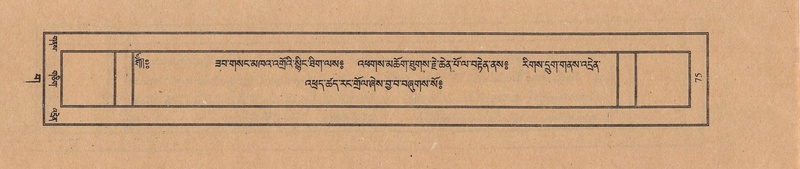 ཟབ་གསང་མཁའ་འགྲོའི་སྙིང་ཐིག་ལས༔ འཕགས་མཆོག་ཐུགས་རྗེ་ཆེན་པོ་ལ་བརྟེན་ནས༔ རིགས་དྲུག་གནས་འདྲེན་
འཕྲད་ཚད་རང་གྲོལ་ཞེས་བྱ་བ་བཞུགས་སོ༔
75